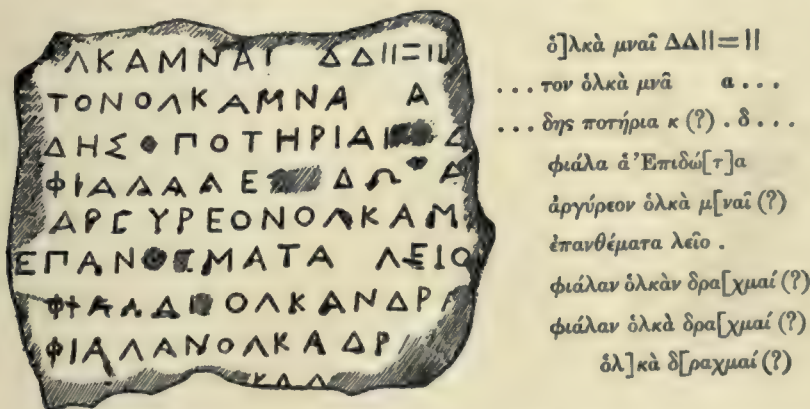 ΛΚΑΜΝΑΙ ΔΔΙΙ=ΙΙ
ΤΟΝΟΛΚΑΜΝΑ Α
ΔΗΣ ΠΟΤΗΡΙΑΙ Δ
ΦΙΑΛΑΑΕ Δ
ΑΡΓΥΡΕΟΝΟΛΚΑΜ
ΕΠΑΝΘΕΜΑΤΑ ΛΕΙΟ
ΟΛΚΑΝΔΡΑ
ΦΙΑΛΑΝΟΛΚΑΔΡ
ΚΑΔ
ὁ]λκὰ μναῖ ΔΔΙΙ=ΙΙ
...τον ὁλκὰ μνᾶ α...
...δης ποτήρια κ (?) . δ...
φιάλα ἁ’Επιδώ[τ]α
ἀργύρεον ὁλκὰ μ[ναῖ (?)
ἐπανθέματα λεῖο .
φιάλαν ὁλκὰν δρα[χμαί (?)
φιάλαν ὁλκὰ δρα[χμαί (?)
ὁλ]κὰ δ[ραχμαί (?)